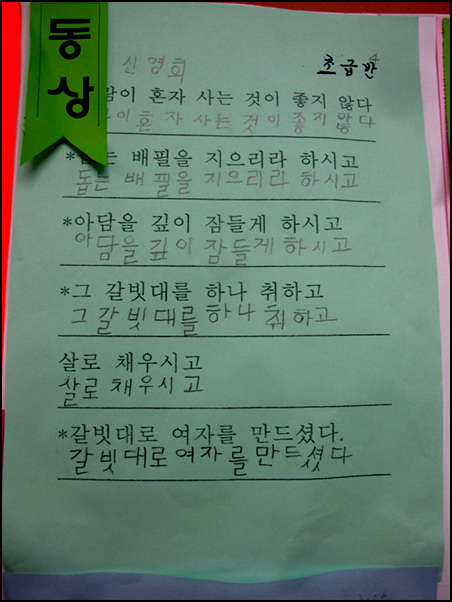 동상
신영희 초급반
이 혼자 사는 것이 좋지 않다
이 혼자 사는 것이 좋지 않다
*돕는 배필을 지으리라 하시고
돕는 배필을 지으리라 하시고
*아담을 깊이 잠들게 하시고
아담을 깊이 잠들게 하시고
*그 갈빗대를 하나 취하고
그 갈빗대를 하나 취하고
살로 채우시고
살로 채우시고
*갈빗대로 여자를 만드셨다.
갈빗대로 여자를 만드셨다